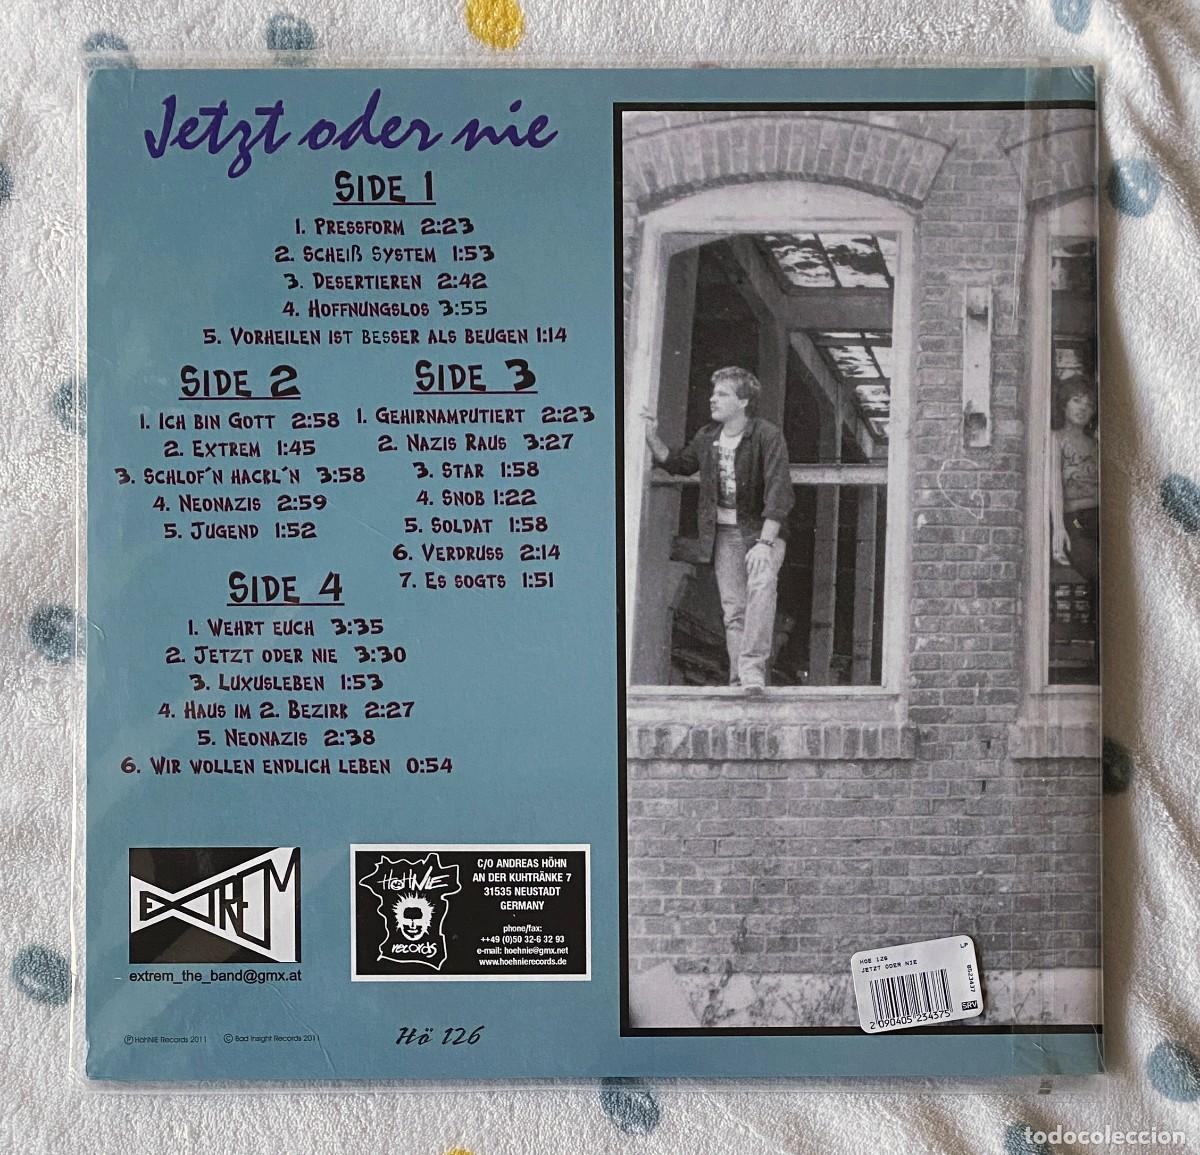 Jetzt oder nie
SIDE 1
1. PRESSFORM 2:23
2. SCHEIß SYSTEM 1:53
3. DESERTIEREN 2:42
4. HOFFNUNGSLOS 3:55
5. VORHEILEN IST BESSER ALS BEUGEN 1:14
SIDE 2
1. ICH BIN GOTT 2:58
2. EXTREM 1:45
3. SCHLOF´N HACKL´N 3:58
4. NEONAZIS 2:59
5. JUGEND 1:52
SIDE 3
1. GEHIRNAMPUTIERT 2:23
2. NAZIS RAUS 3:27
3. STAR 1:58
4. SNOB 1:22
5. SOLDAT 1:58
6. VERDRUSS 2:14
7. ES SOGTS 1:51
SIDE 4
1. WEHRT EUCH 3:35
2. JETZT ODER NIE 3:30
3. LUXUSLEBEN 1:53
4. HAUS IM 2. BEZIRK 2:27
5. NEONAZIS 2:38
6. WIR WOLLEN ENDLICH LEBEN 0:54
EXTREM
extrem_the_band@gmx.at
HÖHNIE
records
C/O ANDREAS HÖHN
AN DER KUHTRÄNKE 7
31535 NEUSTADT
GERMANY
phone/fax:
++49 (0)50 32-6 32 93
e-mail: hoehnie@gmx.net
www.hoehnierecords.de
Ⓟ HöhNIE Records 2011 © Bad Insight Records 2011
Hö 126
HOE 126
JETZT ODER NIE
LP
0523437
SRV
2 090405 234375
todocoleccion